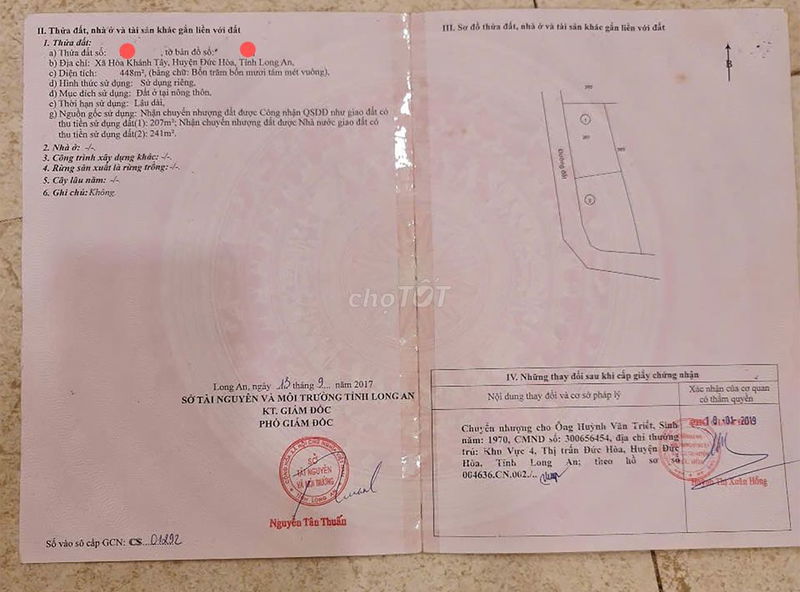 II. Thửa đất, nhà ở và tài sản khác gắn liền với đất
1. Thửa đất:
a) Thửa đất số: , tờ bản đồ số:
b) Địa chỉ: Xã Hòa Khánh Tây, Huyện Đức Hòa, Tỉnh Long An.
c) Diện tích: 448m², (bằng chữ: Bốn trăm bốn mươi tám mét vuông).
d) Hình thức sử dụng: Sử dụng riêng,
đ) Mục đích sử dụng: Đất ở tại nông thôn,
e) Thời hạn sử dụng: Lâu dài.
g) Nguồn gốc sử dụng: Nhận chuyển nhượng đất được Công nhận QSDĐ như giao đất có
thu tiền sử dụng đất(1): 207m²; Nhận chuyển nhượng đất được Nhà nước giao đất có
thu tiền sử dụng đất(2): 241m².
2. Nhà ở: -/-.
3. Công trình xây dựng khác: -/-.
4. Rừng sản xuất là rừng trồng: -/-.
5. Cây lâu năm: -/-.
6. Ghi chú: Không.
Long An, ngày 13 tháng 9 năm 2017
SỞ TÀI NGUYÊN VÀ MÔI TRƯỜNG TỈNH LONG AN
KT. GIÁM ĐỐC
PHÓ GIÁM ĐỐC
SỞ
TÀI NGUYÊN
VÀ MÔI TRƯỜNG
Nguyễn Tân Thuấn
Số vào sổ cấp GCN: CS 01292
III. Sơ đồ thửa đất, nhà ở và tài sản khác gắn liền với đất
B
1
2
Đường đất
choTỐT
IV. Những thay đổi sau khi cấp giấy chứng nhận
Nội dung thay đổi và cơ sở pháp lý
Xác nhận của cơ quan
có thẩm quyền
Chuyển nhượng cho Ông Huỳnh Văn Triết, Sinh
năm: 1970, CMND số: 300656454, địa chỉ thường
trú: Khu Vực 4, Thị trấn Đức Hòa, Huyện Đức
Hòa, Tỉnh Long An; theo hồ sơ số
004636.CN.002./.
18-01-2019
Huỳnh Thị Xuân Hồng